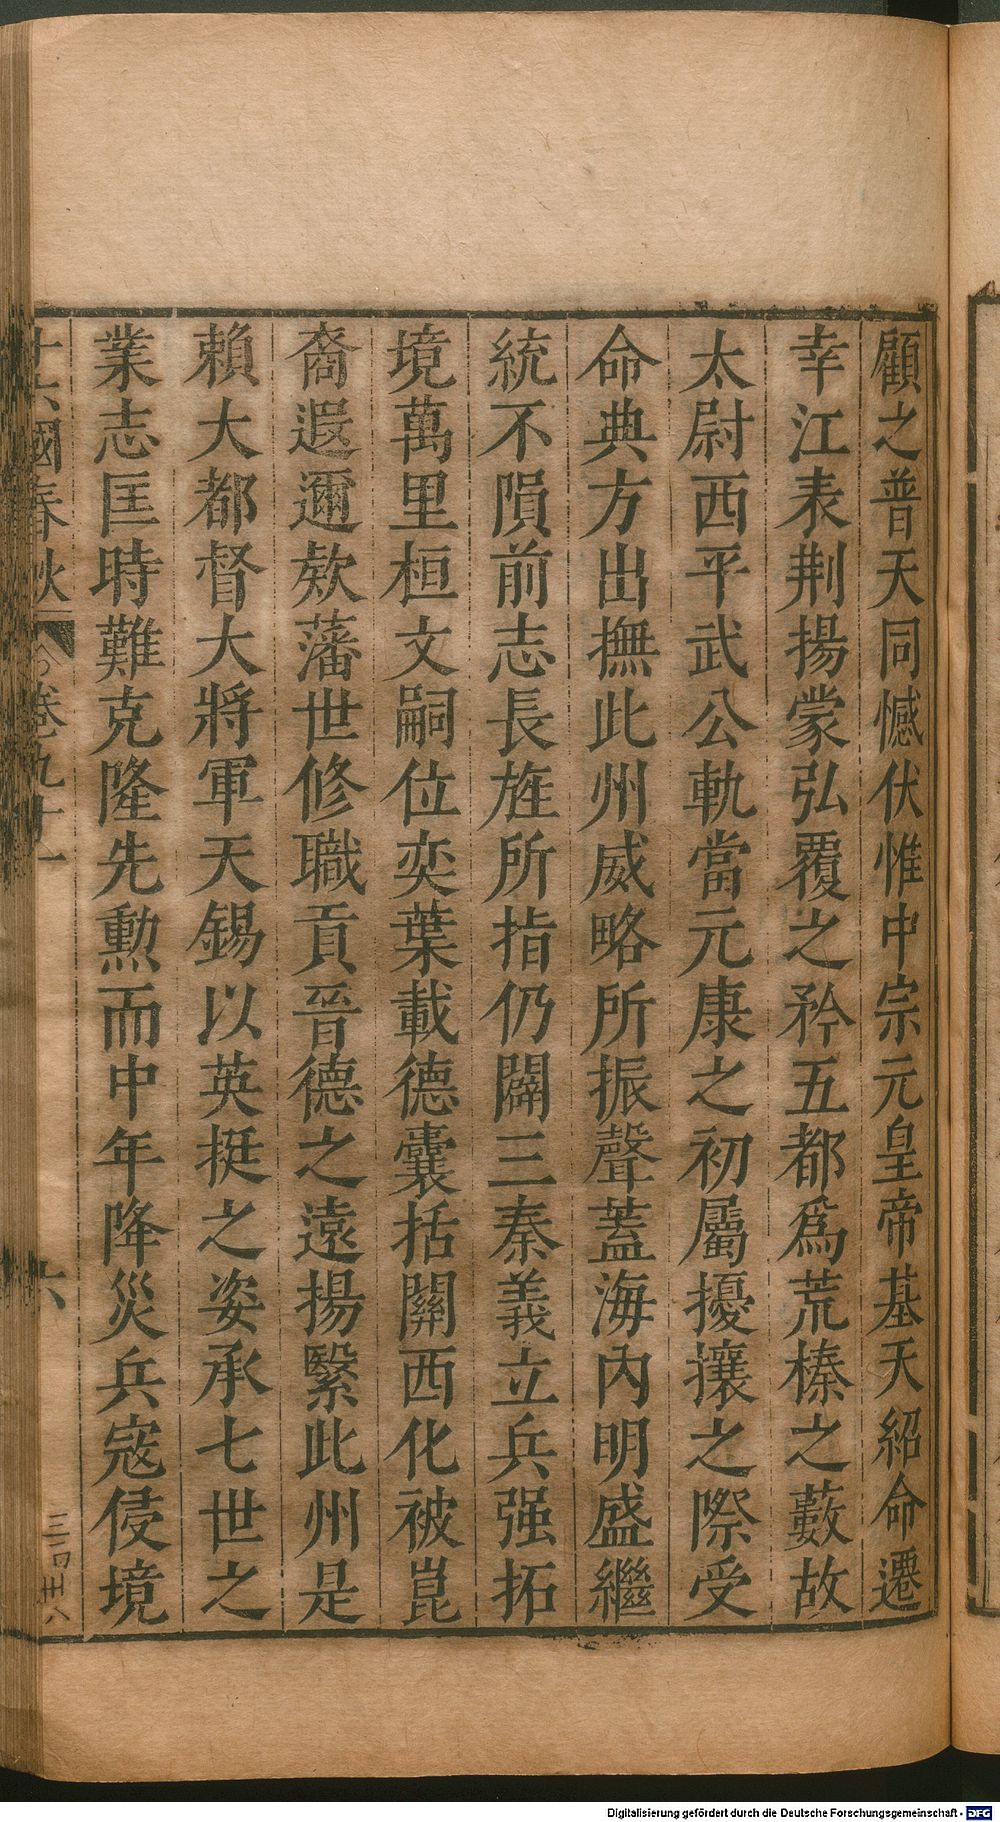 顧之普天同憾伏惟中宗元皇帝基天紹命遷
幸江表荆揚蒙弘覆之矜五都爲荒榛之藪故
太尉西平武公軌當元康之初屬擾攘之際受
命典方出撫此州威略所振聲蓋海内明盛繼
統不隕前志長旌所指仍闢三秦義立兵强拓
境萬里桓文嗣位奕葉載德囊括關西化被崑
裔遐邇欵藩世修職貢晉德之遠揚繄此州是
賴大都督大將軍天錫以英挺之姿承七世之
業志匡時難克隆先勲而中年降災兵寇侵境
十六國春秋 卷九十一 六
Digitalisierung gefördert durch die Deutsche Forschungsgemeinschaft - DFG